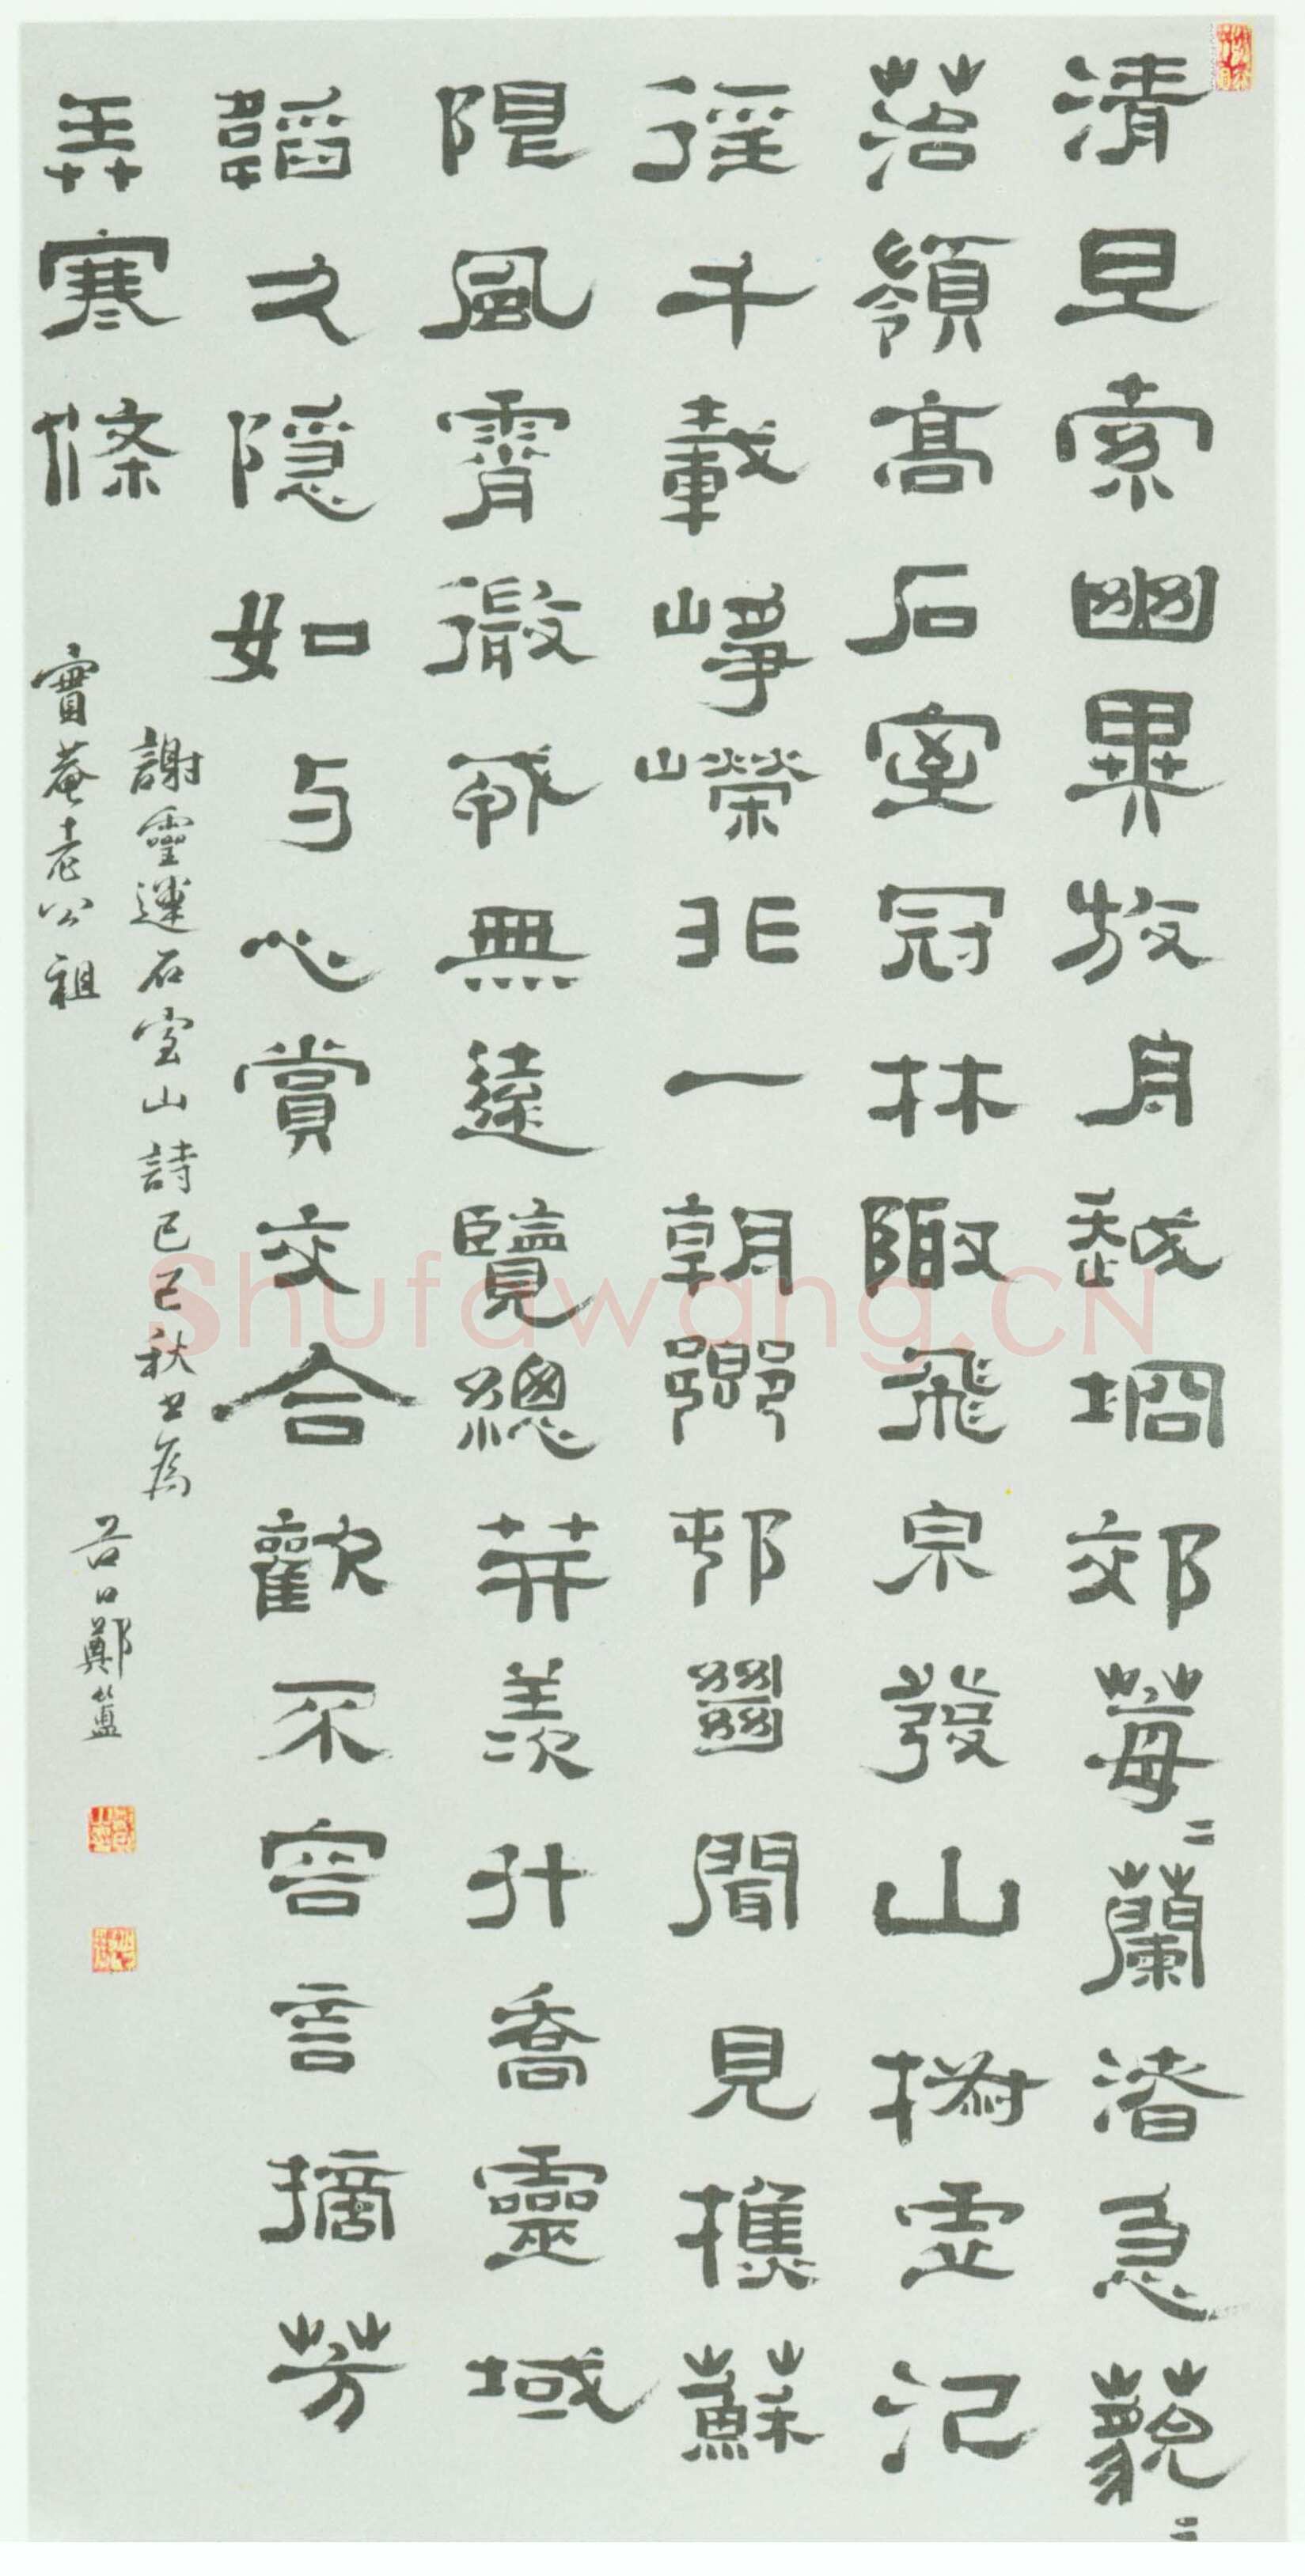 清旦索幽異放舟越坰郊莓〻蘭渚急藐〻
苔嶺高石室冠林陬飛宗發山椒虛氾
徑千載崢嶸非一朝鄉邨絕聞見樵蘇
限風霄微戎無遠覽總笄羨升喬靈域
韜久隱如与心賞交合歡不容言摘芳
弄寒條
謝靈運石室山詩己巳秋書為
寶菴老公祖
谷口鄭簠
Shufawang.CN